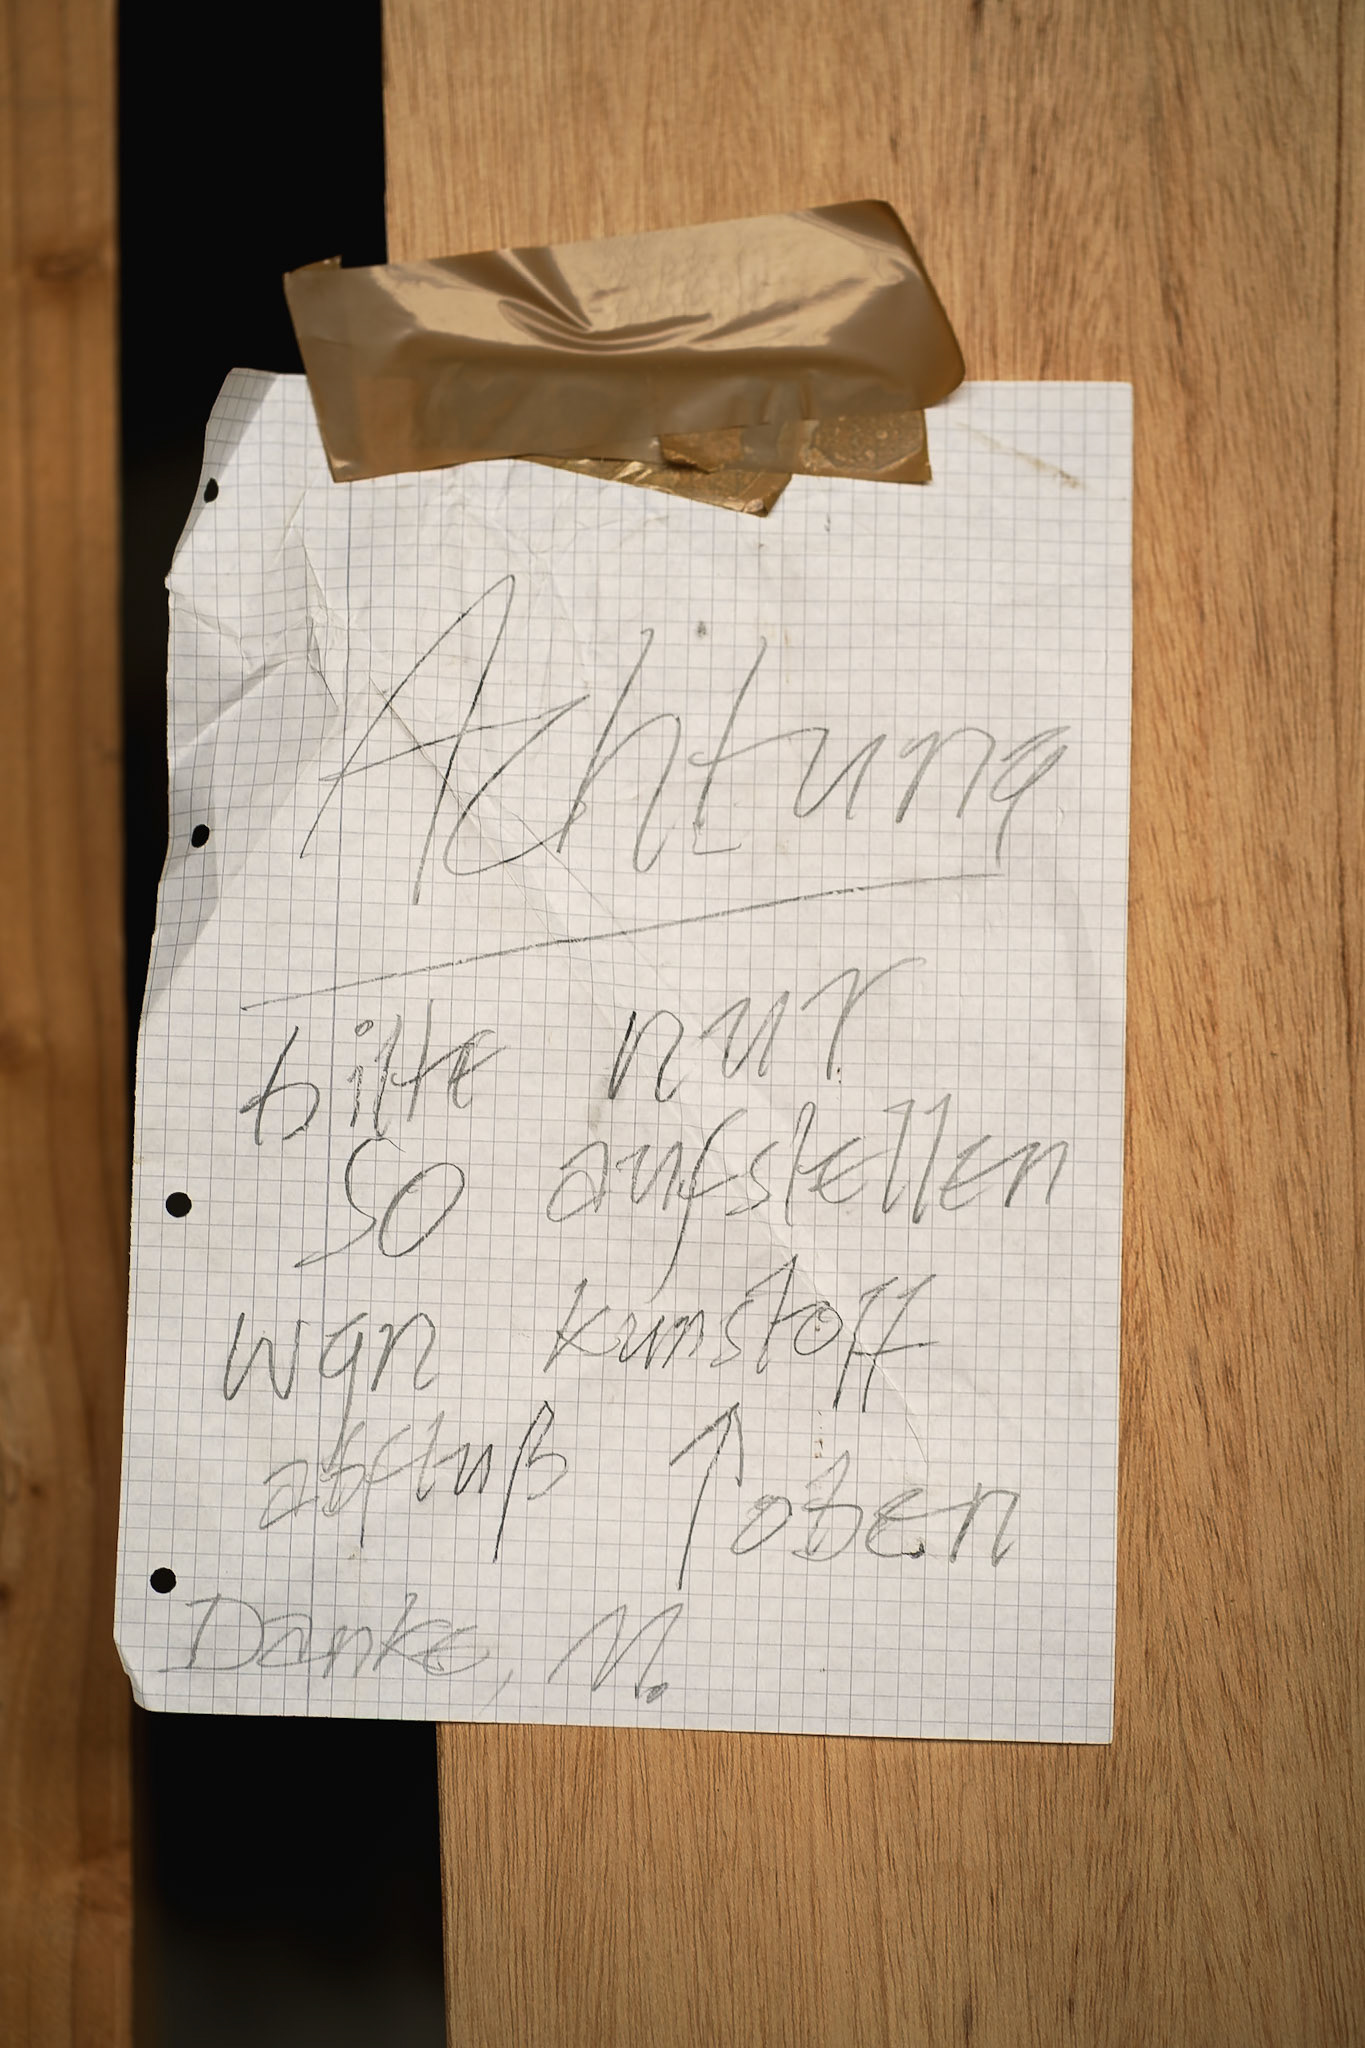 Achtung
bitte nur
so aufstellen
wgn kunstoff
abfluß ↑ oben
Danke, M.